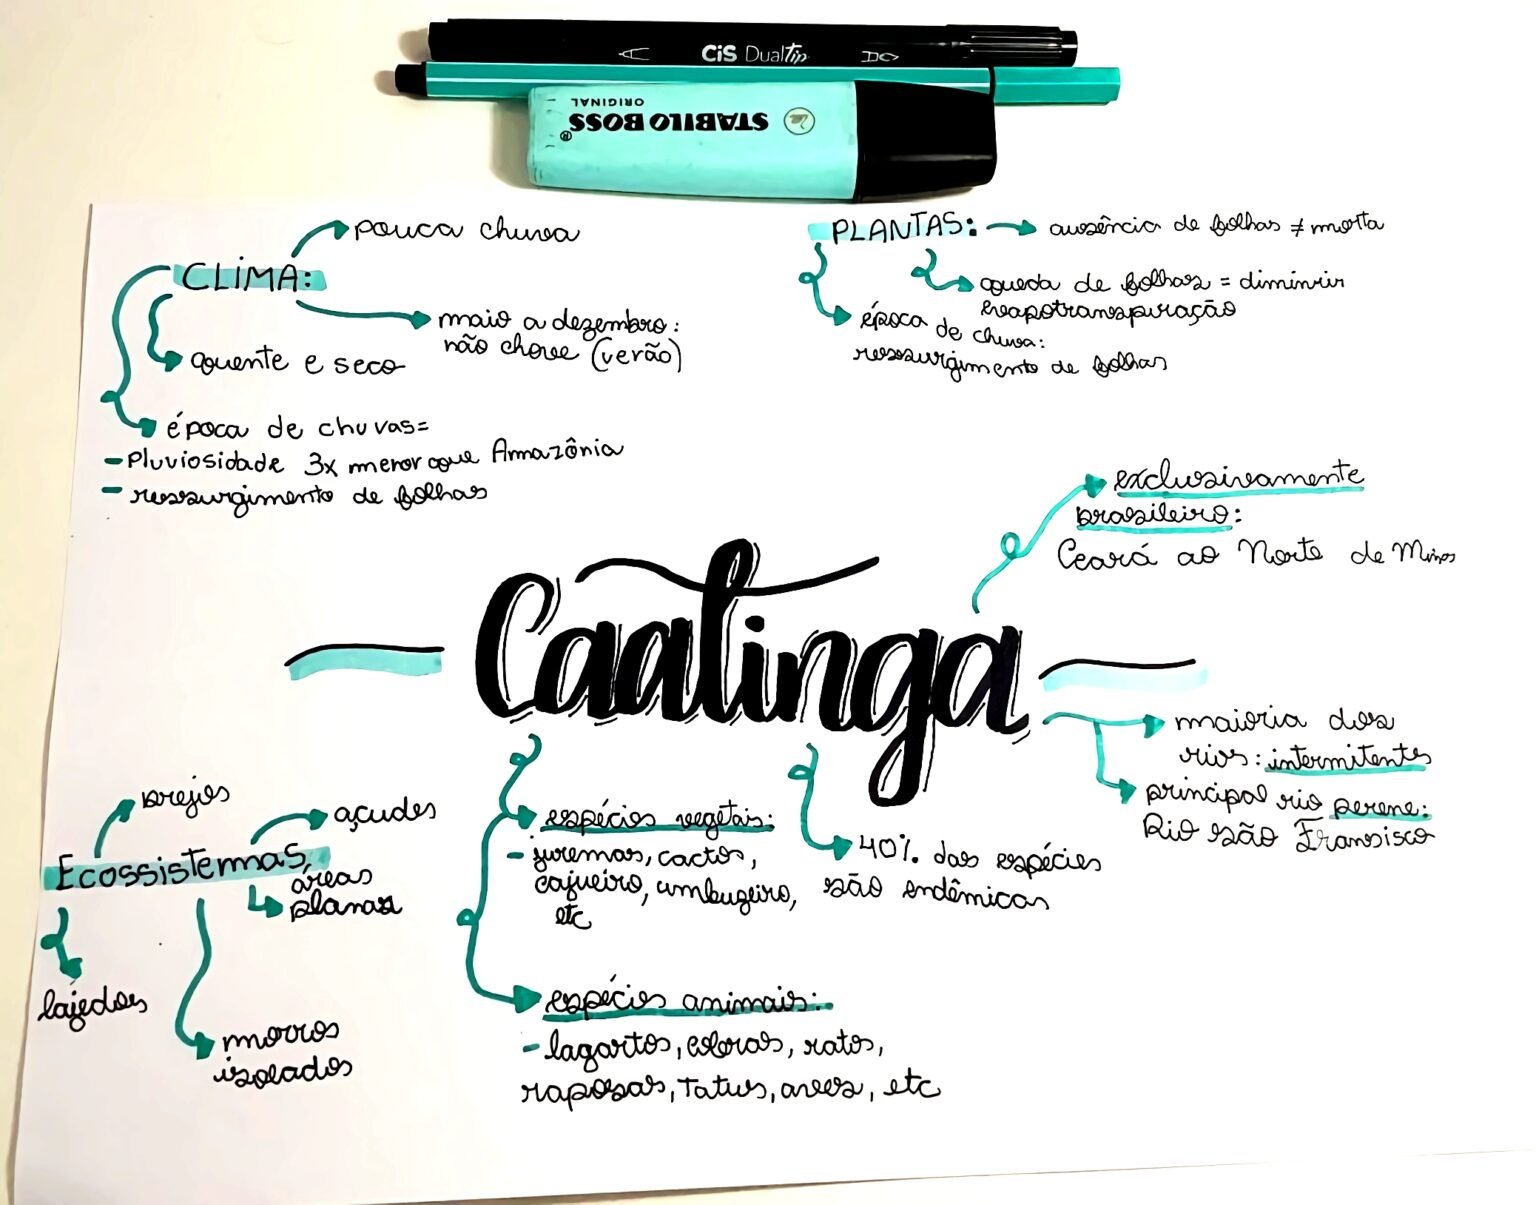 CiS Dualtip
STABILO BOSS®
ORIGINAL
CLIMA:
pouca chuva
maio a dezembro:
não chove (verão)
quente e seco
época de chuvas=
- Pluviosidade 3x menor que Amazônia
- ressurgimento de folhas
PLANTAS:
ausência de folhas ≠ morta
queda de folhas = diminuir
evapotranspiração
época de chuva:
ressurgimento de folhas
exclusivamente
brasileiro:
Ceará ao Norte de Minas
Caatinga
maioria dos
rios: intermitentes
principal rio perene:
Rio são Fransisco
Ecossistemas
brejos
açudes
áreas
planas
lajedos
morros
isolados
espécies vegetais:
- juremas, cactos,
cajueiro, umbuzeiro,
etc
40% das espécies
são endêmicas
espécies animais:
- lagartos, cobras, ratos,
raposas, tatus, aves, etc